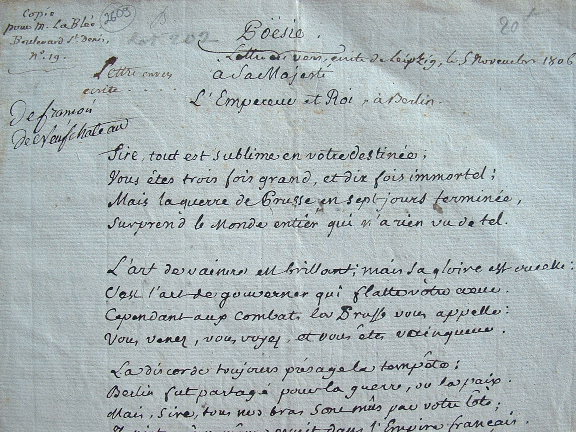 Copie
pour M. La Blée
Boulevard St. Denis,
N°. 19.
2603
20 f
Poësie.
Lettre en vers, écrite de Leipzig, le 5 Novembre 1806
à Sa Majesté
Lettre en vers
écrite
L'Empereur et Roi, à Berlin.
De françois
de Neufchateau
Sire, tout est sublime en votre destinée;
Vous êtes trois fois grand, et dix fois immortel;
Mais la guerre de Prusse en sept jours terminée,
Surprend le Monde entier qui n'a rien vu de tel.
L'art de vaincre est brillant; mais sa gloire est cruelle:
C'est l'art de gouverner qui flatte vôtre cœur.
Cependant aux combats la Prusse vous appelle:
Vous venez, vous voyez, et vous êtes vainqueur.
La discorde toujours présage la tempête;
Berlin fut partagé pour la guerre, ou la paix.
Mais, Sire, tous nos bras sont mûs par votre tête;
dans l'Empire français.